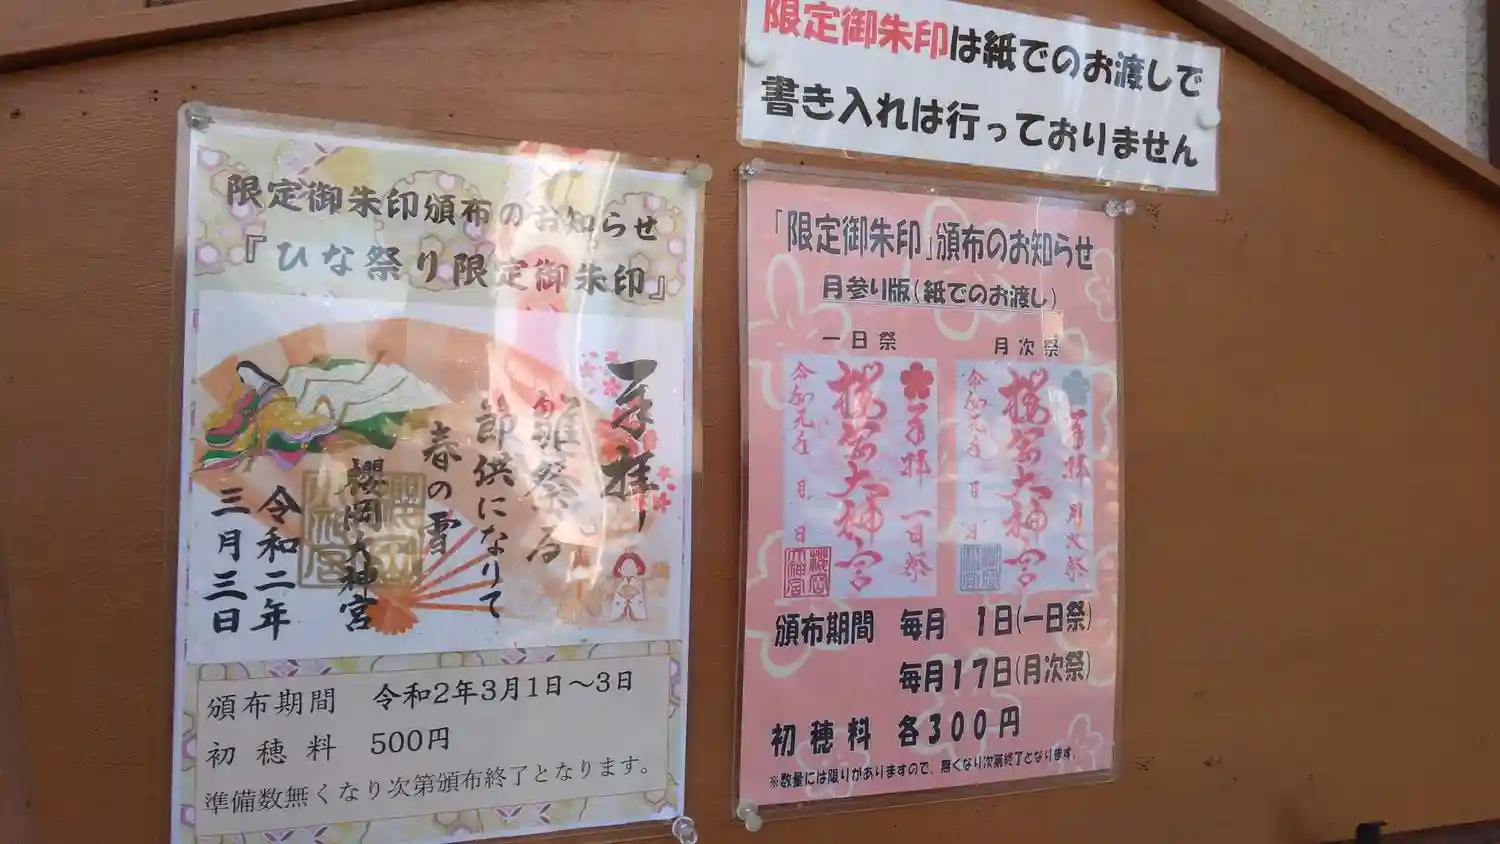 限定御朱印は紙でのお渡しで
書き入れは行っておりません
限定御朱印頒布のお知らせ
『ひな祭り限定御朱印』
奉拝
雛祭る
節供になりて
春の雪
櫻岡大神宮
令和二年
三月三日
頒布期間 令和2年3月1日～3日
初穂料 500円
準備数無くなり次第頒布終了となります。
「限定御朱印」頒布のお知らせ
月参り版(紙でのお渡し)
一日祭
月次祭
奉拝 一日祭
櫻岡大神宮
令和元年 月 日
奉拝 月次祭
櫻岡大神宮
令和元年 月 日
頒布期間 毎月 1日(一日祭)
毎月17日(月次祭)
初穂料 各300円
※数量には限りがありますので、無くなり次第終了となります。